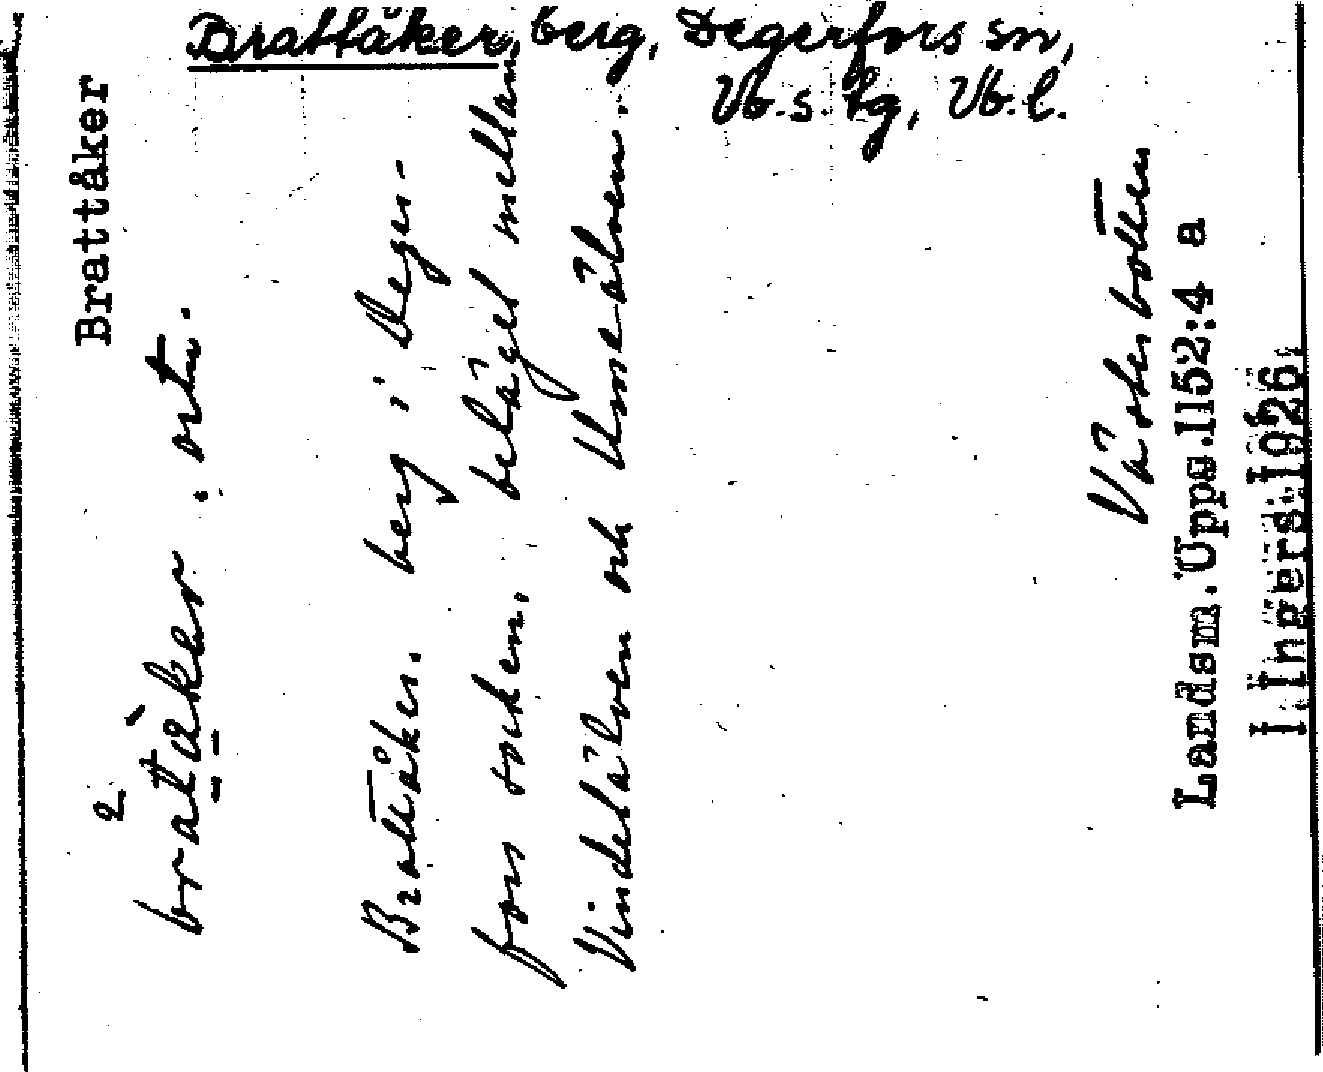 Brattåker, berg, Degerfors sn,
Vb.s. tg, Vb.l.
Brattåker
2
bratåker . ortn.
Brattåker. berg i Deger-
fors socken, beläget mellan
Vindelälven och Umeälven.
Västerbotten
Landsm.Upps.1152:4 a
I.Ingers.1926